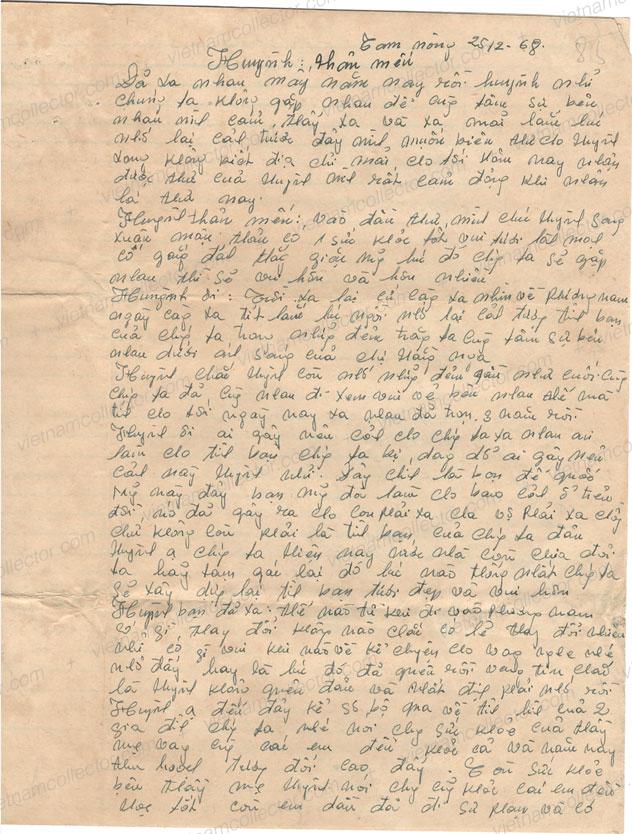 Tam nông 25/2-68.
Huỳnh: thân mến
Đã xa nhau mấy năm nay rồi huỳnh nhỉ
chúng ta không gặp nhau để cùng tâm sự bên
nhau mình cảm thấy xa và xa mãi lắm lúc
nhớ lại cảnh trước đây mình muốn biên thư cho Huỳnh
song không biết địa chỉ mãi cho tới hôm nay nhận
được thư của Huỳnh mình rất cảm động khi nhận
lá thư này.
Huỳnh thân mến: vào đầu thư, mình chúc Huỳnh sang
xuân mậu thân có 1 sức khỏe tốt vui tươi
cố gắng đánh thắng giặc mỹ lúc đó chúng ta sẽ gặp
nhau thì sẽ vui hơn và hơn nhiều
Huỳnh ơi: Trời xa lại cứ càng xa nhìn về phương nam
ngày càng xa tít lúc ngồi nhớ lại cảnh tượng tình bạn
của chúng ta trong những đêm trăng ta cùng tâm sự bên
nhau dưới ánh sáng của chị Hằng nữa
Huỳnh chắc Huỳnh còn nhớ những đêm gần như cuối cùng
chúng ta đã cùng nhau đi xem vui vẻ bên nhau thế mà
tính cho tới ngày nay xa nhau đã hơn 3 năm rồi
Huỳnh ơi ai gây nên cảnh cho chúng ta xa nhau ai
làm cho tình bạn chúng ta bị dang dở ai gây nên
cảnh này Huỳnh nhỉ. đây chính là bọn đế quốc
Mỹ này đây bọn mỹ đã làm cho bao cảnh
đời, nó đã gây ra cho con phải xa cha vợ phải xa chồng
chứ không còn phải là tình bạn của chúng ta đâu
Huỳnh ạ chúng ta hiện nay nước nhà còn chia đôi
ta hãy tạm gác lại đó lúc nào thống nhất chúng ta
sẽ xây dựng lại tình bạn tươi đẹp và vui hơn
Huỳnh bạn đã xa: thế nào từ khi đi vào phương nam
có gì thay đổi không nào chắc có lẽ thay đổi nhiều
nhỉ có gì vui khi nào về kể chuyện cho nghe nhé
nhớ đấy hay là lúc đó đã quên rồi tin chắc
là Huỳnh không quên đâu và nhất định phải nhớ rồi
Huỳnh ạ đến đây kể sơ bộ qua về tình hình của 2
gia đình chúng ta nhé nói chung sức khỏe của thầy
mẹ cùng các em đều khỏe cả và năm nay
thu hoạch tương đối cao đấy Còn sức khỏe
bên thầy mẹ Huỳnh nói chung cũng khỏe các em đều
học tốt còn em dần đã đi sư phạm và có